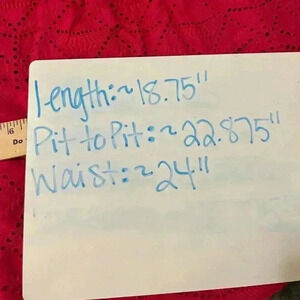 length:~18.75"
Pit to Pit:~22.875"
Waist:~24"
6
Do